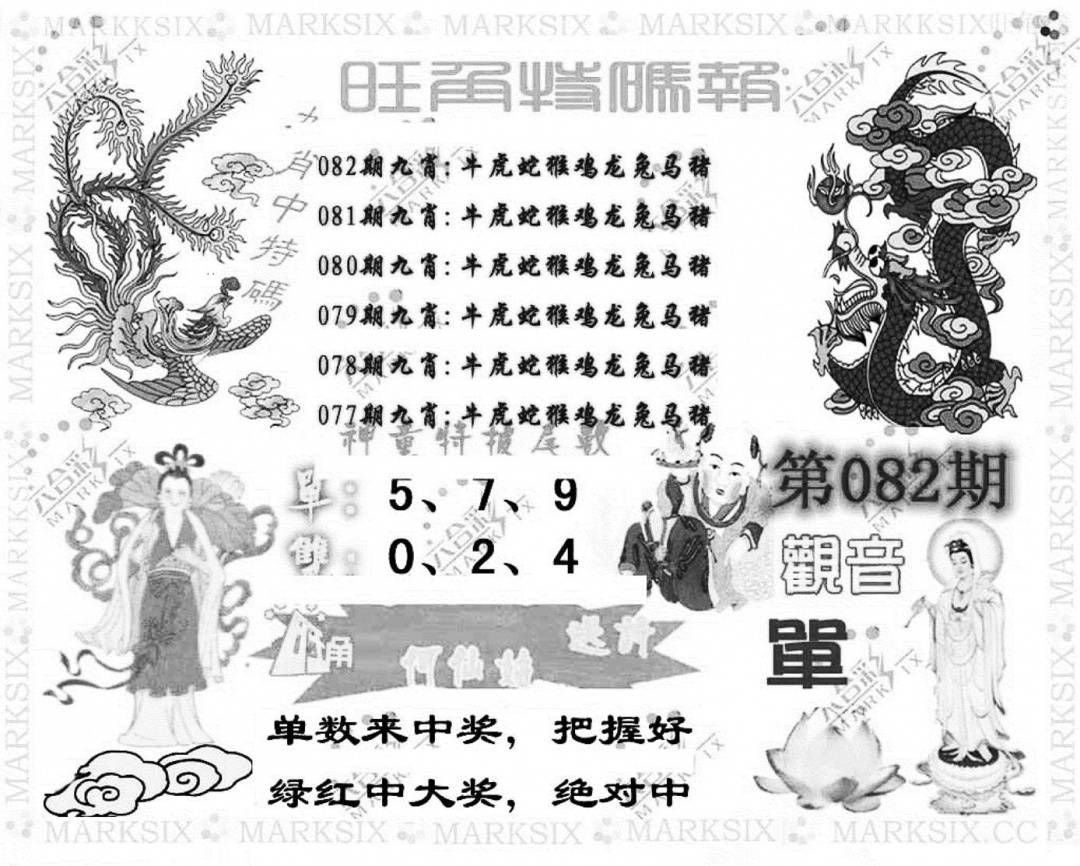 旺角特碼報
九肖中特碼
082期九肖:牛虎蛇猴鸡龙兔马猪
081期九肖:牛虎蛇猴鸡龙兔马猪
080期九肖:牛虎蛇猴鸡龙兔马猪
079期九肖:牛虎蛇猴鸡龙兔马猪
078期九肖:牛虎蛇猴鸡龙兔马猪
077期九肖:牛虎蛇猴鸡龙兔马猪
神童特报尾数
單: 5、7、9
雙: 0、2、4
第082期
觀音
單
何仙姑
单数来中奖，把握好
绿红中大奖，绝对中
MARKSIX MARKSIX MARKSIX MARKSIX MARKSIX.CC